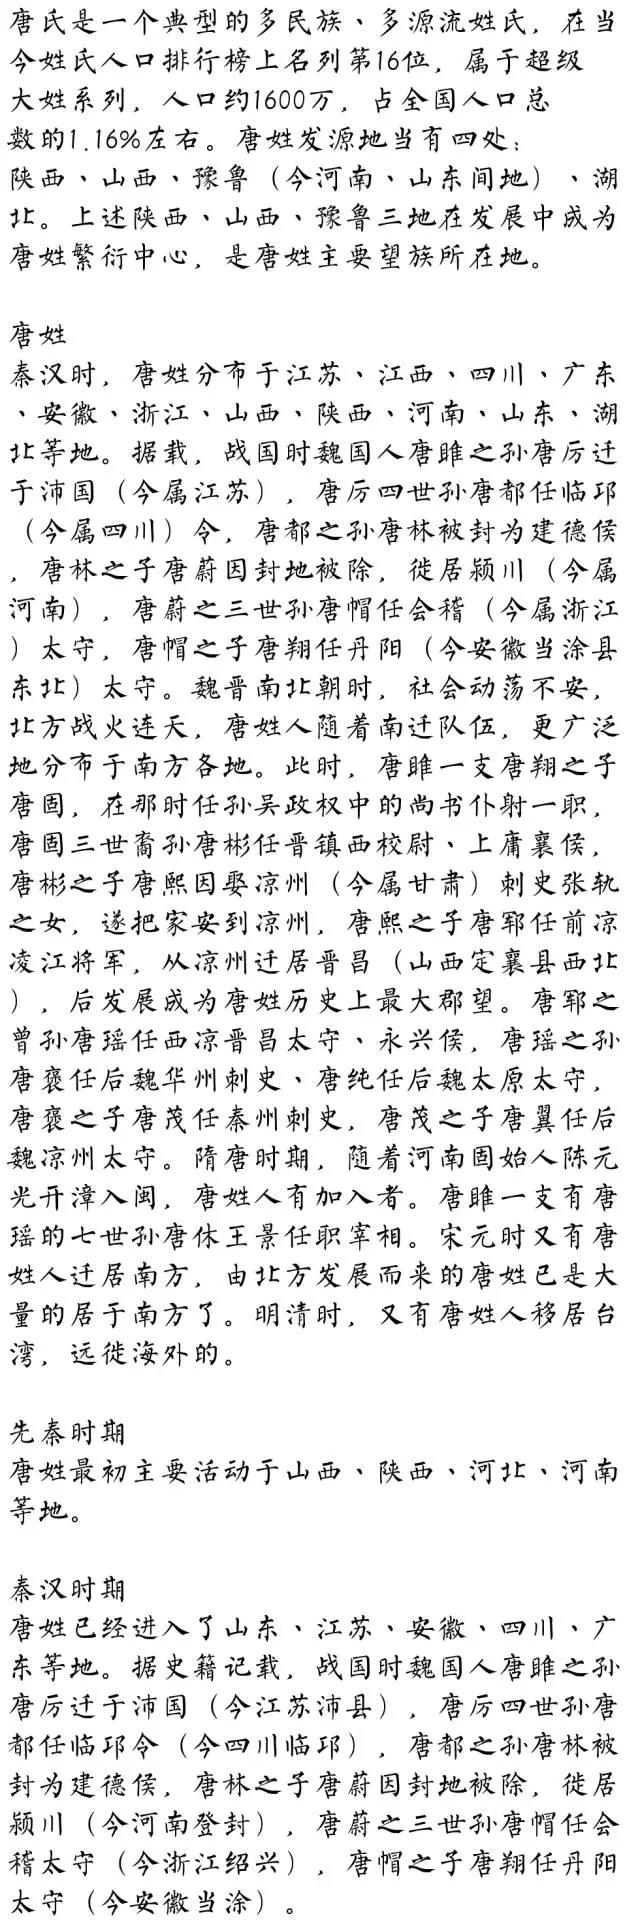 唐氏是一个典型的多民族、多源流姓氏，在当
今姓氏人口排行榜上名列第16位，属于超级
大姓系列，人口约1600万，占全国人口总
数的1.16%左右。唐姓发源地当有四处：
陕西、山西、豫鲁（今河南、山东间地）、湖
北。上述陕西、山西、豫鲁三地在发展中成为
唐姓繁衍中心，是唐姓主要望族所在地。
唐姓
秦汉时，唐姓分布于江苏、江西、四川、广东
、安徽、浙江、山西、陕西、河南、山东、湖
北等地。据载，战国时魏国人唐雎之孙唐厉迁
于沛国（今属江苏），唐厉四世孙唐都任临邛
（今属四川）令，唐都之孙唐林被封为建德侯
，唐林之子唐蔚因封地被除，徙居颍川（今属
河南），唐蔚之三世孙唐帽任会稽（今属浙江
）太守，唐帽之子唐翔任丹阳（今安徽当涂县
东北）太守。魏晋南北朝时，社会动荡不安，
北方战火连天，唐姓人随着南迁队伍，更广泛
地分布于南方各地。此时，唐雎一支唐翔之子
唐固，在那时任孙吴政权中的尚书仆射一职，
唐固三世裔孙唐彬任晋镇西校尉、上庸襄侯，
唐彬之子唐熙因娶凉州（今属甘肃）刺史张轨
之女，遂把家安到凉州，唐熙之子唐郓任前凉
凌江将军，从凉州迁居晋昌（山西定襄县西北
），后发展成为唐姓历史上最大郡望。唐郓之
曾孙唐瑶任西凉晋昌太守、永兴侯，唐瑶之孙
唐褒任后魏华州刺史、唐纯任后魏太原太守，
唐褒之子唐茂任秦州刺史，唐茂之子唐翼任后
魏凉州太守。隋唐时期，随着河南固始人陈元
光开漳入闽，唐姓人有加入者。唐雎一支有唐
瑶的七世孙唐休王景任职宰相。宋元时又有唐
姓人迁居南方，由北方发展而来的唐姓已是大
量的居于南方了。明清时，又有唐姓人移居台
湾，远徙海外的。
先秦时期
唐姓最初主要活动于山西、陕西、河北、河南
等地。
秦汉时期
唐姓已经进入了山东、江苏、安徽、四川、广
东等地。据史籍记载，战国时魏国人唐雎之孙
唐厉迁于沛国（今江苏沛县），唐厉四世孙唐
都任临邛令（今四川临邛），唐都之孙唐林被
封为建德侯，唐林之子唐蔚因封地被除，徙居
颍川（今河南登封），唐蔚之三世孙唐帽任会
稽太守（今浙江绍兴），唐帽之子唐翔任丹阳
太守（今安徽当涂）。